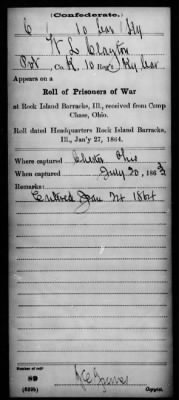 Confederate.
C 10 Cav Ky
W L Clayton
Pvt, Co. K, 10 Reg't Ky Cav
Appears on a
Roll of Prisoners of War
at Rock Island Barracks, Ill., received from Camp
Chase, Ohio.
Roll dated Headquarters Rock Island Barracks,
Ill., Jan'y 27, 1864.
Where captured Cheshire Ohio
When captured July 20, 1863
Remarks:
Entered Jan 24 1864
Number of roll:
89
(639b) Copyist.